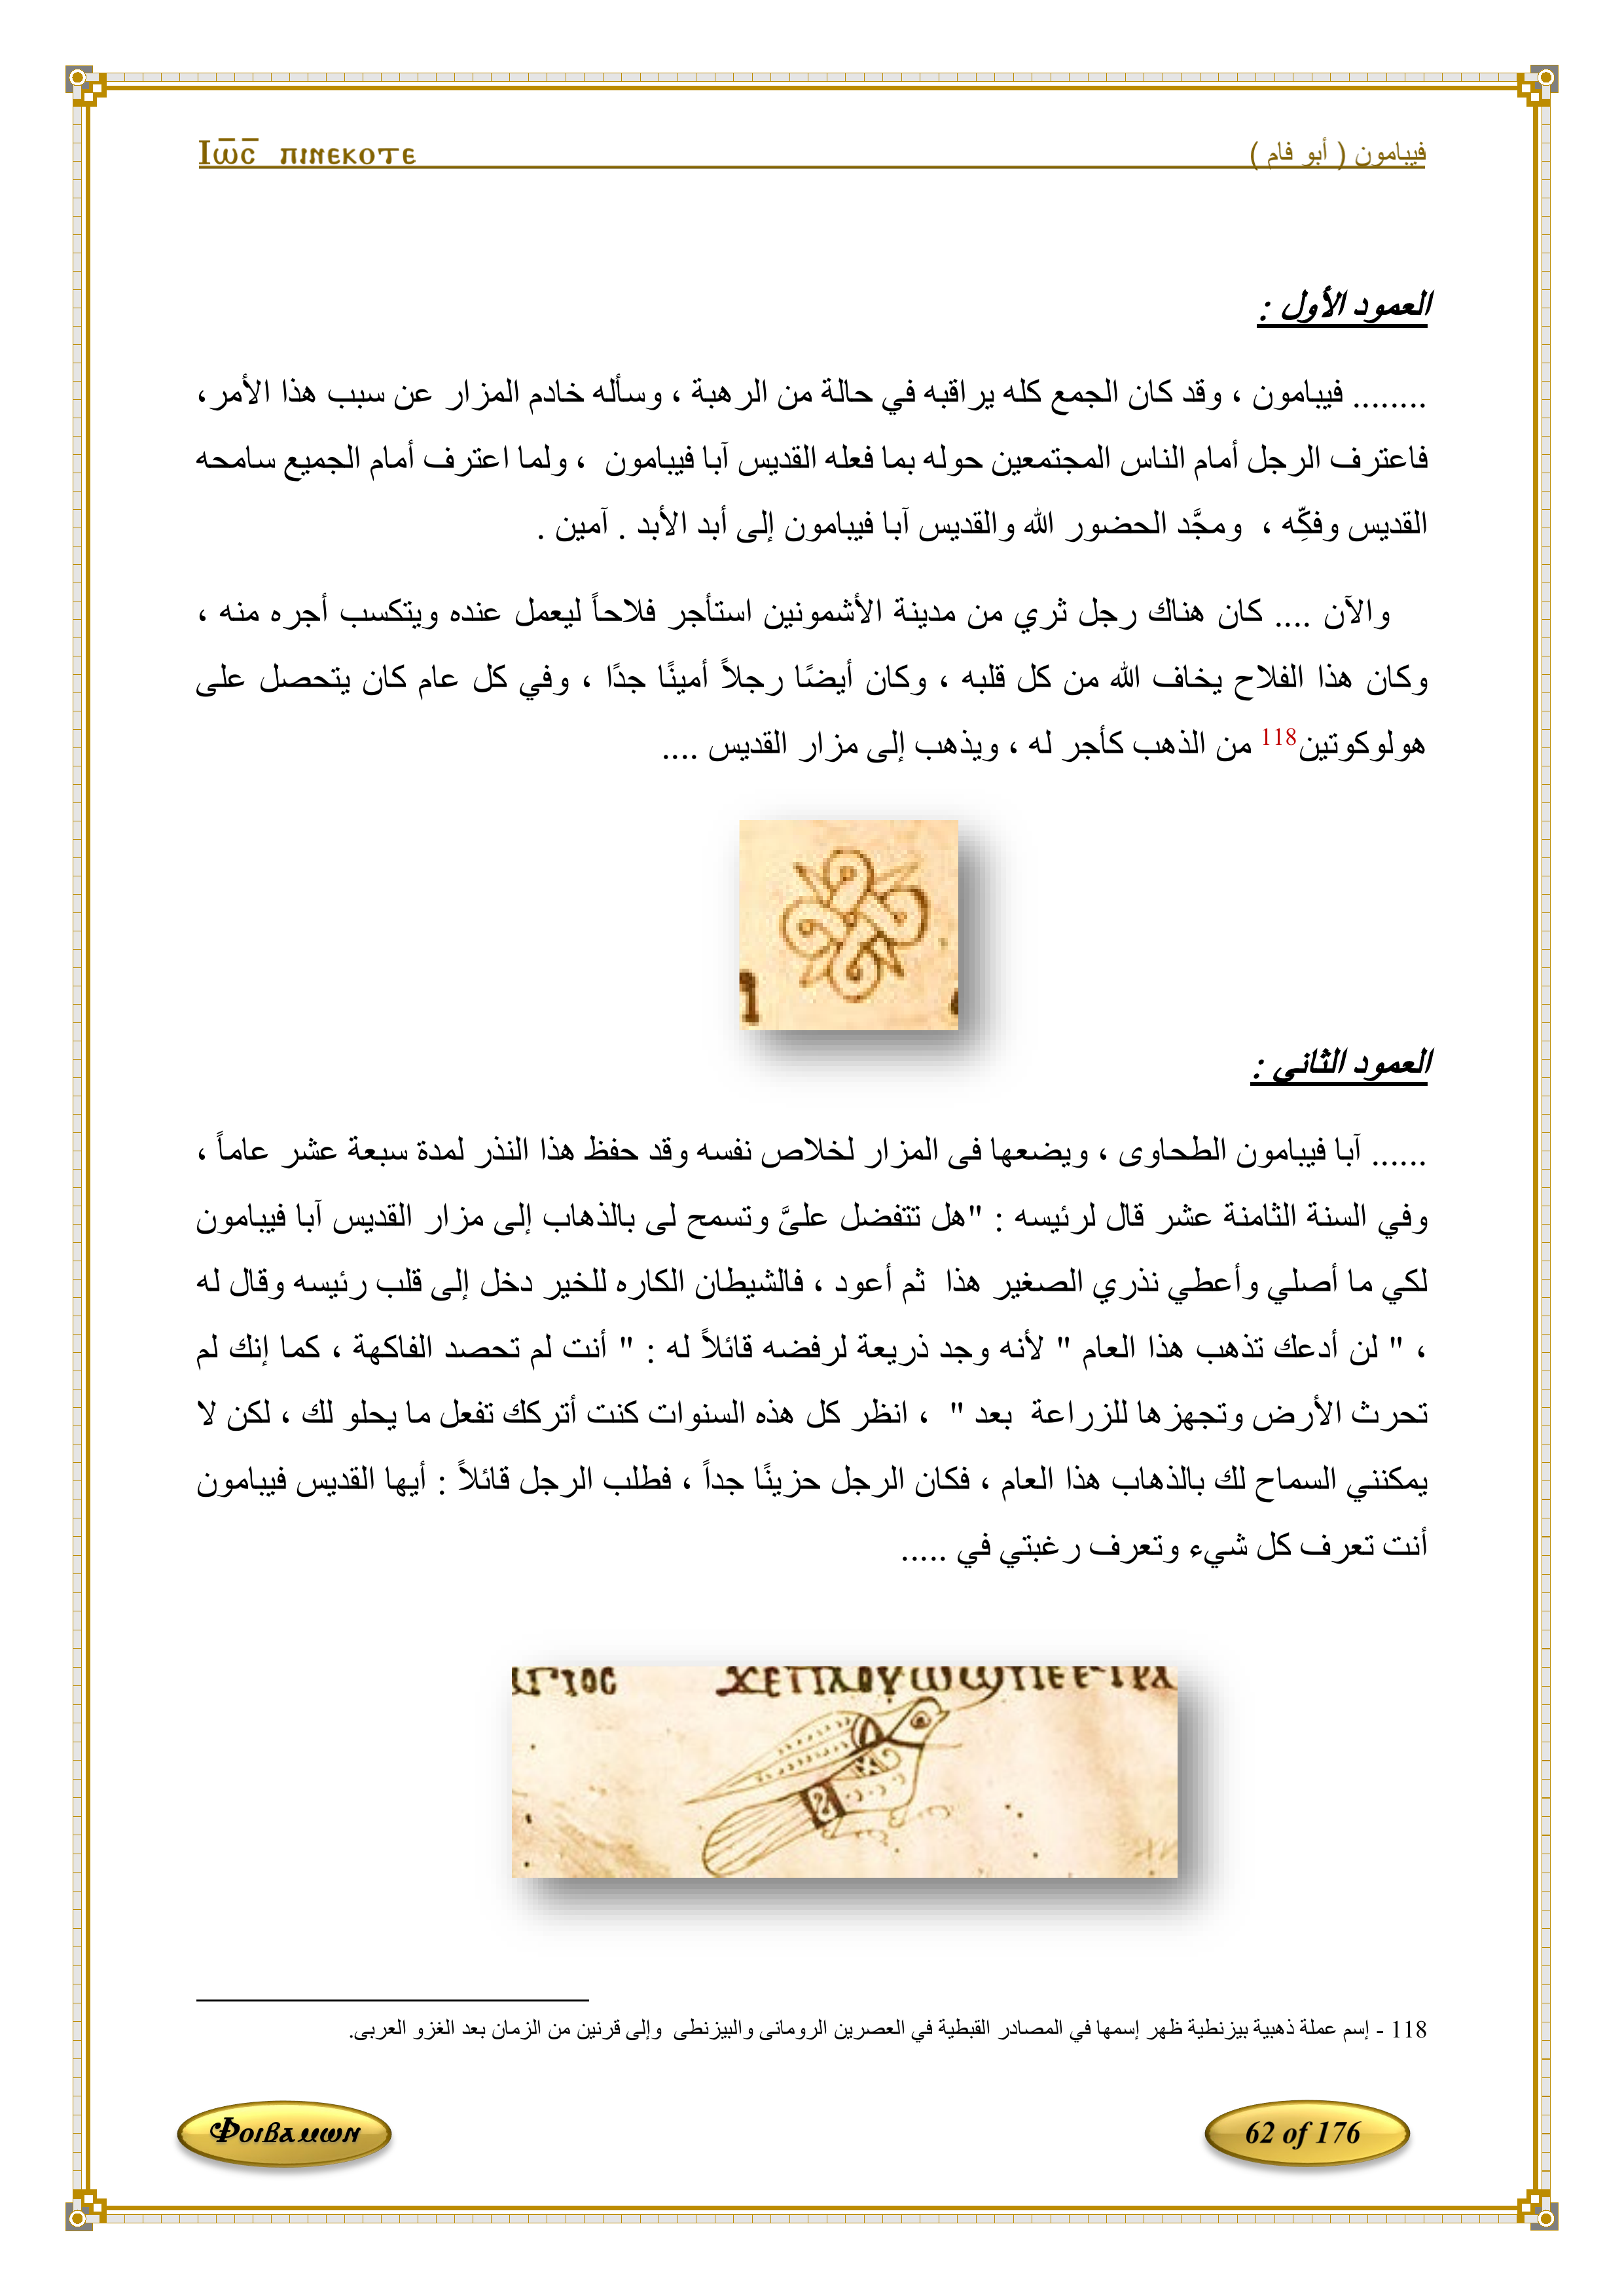 فيبامون ( أبو فام )
Ⲓⲱ̅ⲥ̅ ⲡⲓⲛⲉⲕⲟⲧⲉ
العمود الأول :
........ فيبامون ، وقد كان الجمع كله يراقبه في حالة من الرهبة ، وسأله خادم المزار عن سبب هذا الأمر،
فاعترف الرجل أمام الناس المجتمعين حوله بما فعله القديس آبا فيبامون ، ولما اعترف أمام الجميع سامحه
القديس وفكِّه ، ومجَّد الحضور الله والقديس آبا فيبامون إلى أبد الأبد . آمين .
والآن .... كان هناك رجل ثري من مدينة الأشمونين استأجر فلاحاً ليعمل عنده ويتكسب أجره منه ،
وكان هذا الفلاح يخاف الله من كل قلبه ، وكان أيضًا رجلاً أمينًا جدًا ، وفي كل عام كان يتحصل على
هولوكوتين118 من الذهب كأجر له ، ويذهب إلى مزار القديس ....
العمود الثانى :
...... آبا فيبامون الطحاوى ، ويضعها فى المزار لخلاص نفسه وقد حفظ هذا النذر لمدة سبعة عشر عاماً ،
وفي السنة الثامنة عشر قال لرئيسه : "هل تتفضل علىَّ وتسمح لى بالذهاب إلى مزار القديس آبا فيبامون
لكي ما أصلي وأعطي نذري الصغير هذا ثم أعود ، فالشيطان الكاره للخير دخل إلى قلب رئيسه وقال له
، " لن أدعك تذهب هذا العام " لأنه وجد ذريعة لرفضه قائلاً له : " أنت لم تحصد الفاكهة ، كما إنك لم
تحرث الأرض وتجهزها للزراعة بعد " ، انظر كل هذه السنوات كنت أتركك تفعل ما يحلو لك ، لكن لا
يمكنني السماح لك بالذهاب هذا العام ، فكان الرجل حزينًا جداً ، فطلب الرجل قائلاً : أيها القديس فيبامون
أنت تعرف كل شيء وتعرف رغبتي في .....
118 - إسم عملة ذهبية بيزنطية ظهر إسمها في المصادر القبطية في العصرين الرومانى والبيزنطى وإلى قرنين من الزمان بعد الغزو العربى.
Ⲫⲟⲓⲃⲁⲙⲱⲛ
62 of 176